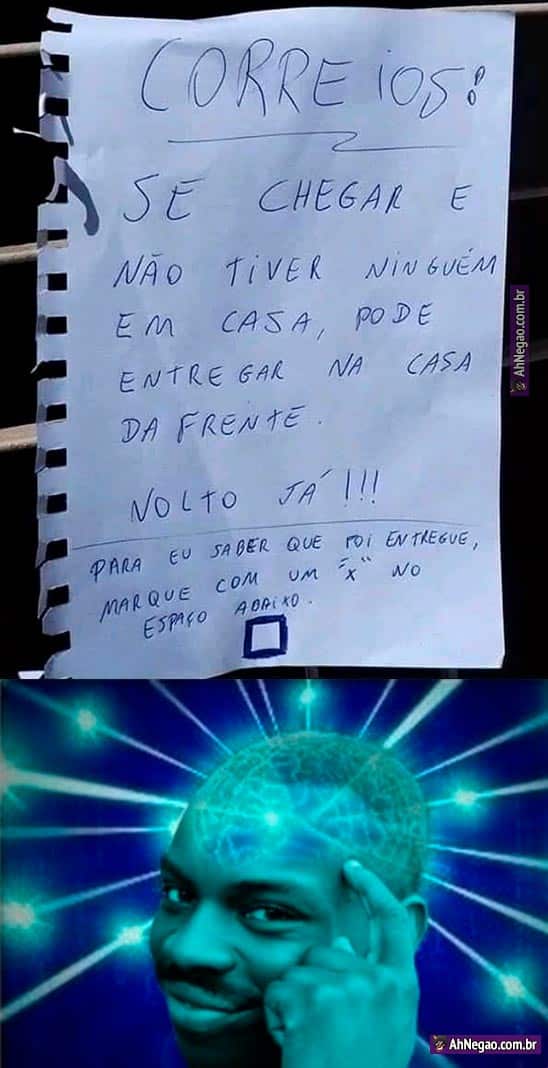 CORREIOS:
SE CHEGAR E
NÃO TIVER NINGUÉM
EM CASA, PODE
ENTREGAR NA CASA
DA FRENTE.
NOLTO JÁ!!!
PARA EU SABER QUE FOI ENTREGUE,
MARQUE COM UM "X" NO
ESPAÇO ABAIXO.
AhNegao.com.br
AhNegao.com.br